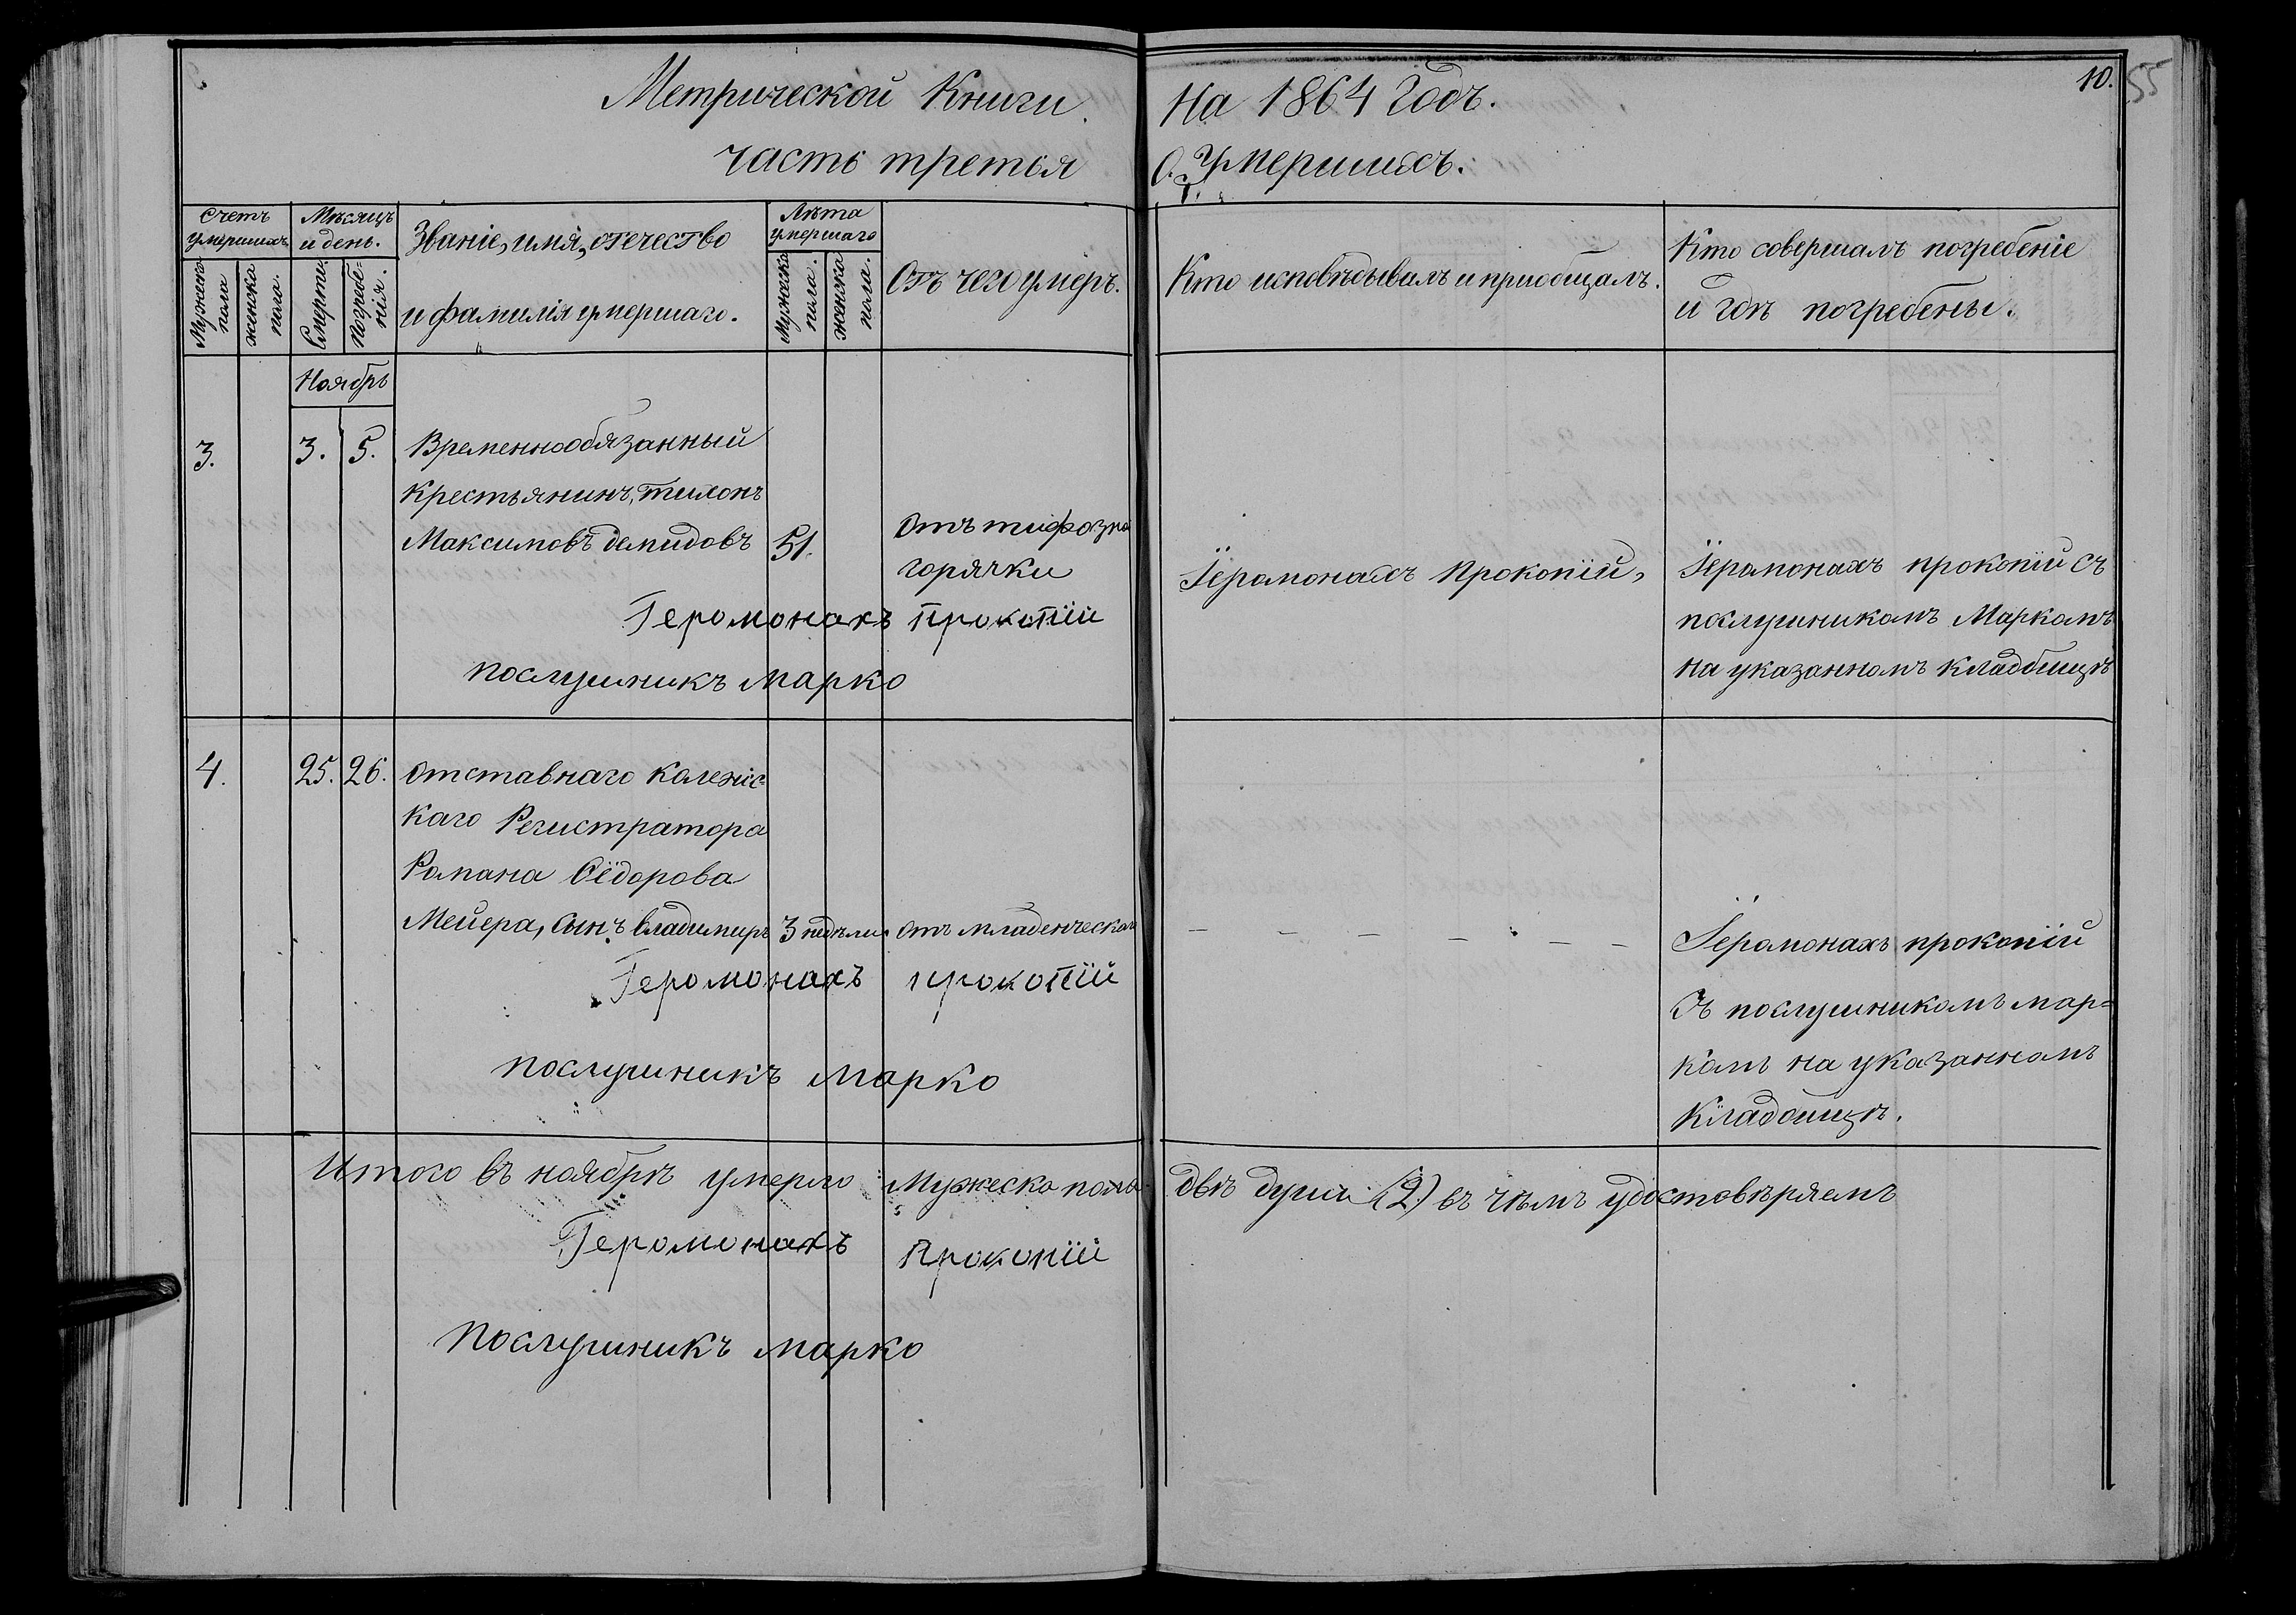 Метрической Книги
На 1864 Годъ.
10.
55
часть третья
О Умершихъ.
Счетъ умершихъ
Мужеска пола
женска пола.
Мѣсяцъ и день.
Смерти.
Погребе-
нія.
Званіе, имя, отечество
и фамилія умершаго.
Лѣта умершаго
Мужеска пола.
женска пола.
Отъ чего умеръ.
Кто исповѣдывалъ и приобщалъ.
Кто совершалъ погребеніе
и Гдѣ погребены.
Ноябрь
3.
3. 5.
Временнообязанный
крестьянинъ, тихонъ
Максимовъ демидовъ
51.
Отъ тифозно
горячки
Іеромонахъ Прокопій,
Іеромонахъ прокопій съ
послушникомъ Маркомъ
на указанномъ кладбищѣ
Іеромонахъ Прокопій
послушникъ Марко
4.
25. 26.
Отставнаго Колежіс-
каго Регистратора
Романа Ѳёдорова
Мейера, сынъ владимиръ
3 недѣли
отъ младенческаго
— — — — — —
Іеромонахъ прокопій
Съ послушникомъ мар=
комъ на указанномъ
Кладбищѣ.
Іеромонахъ прокопій
послушникъ Марко
Итого въ ноябрѣ умерло Мужеска пола
двѣ души (2) въ чѣмъ удостовѣряемъ
Іеромонахъ Прокопій
послушникъ Марко